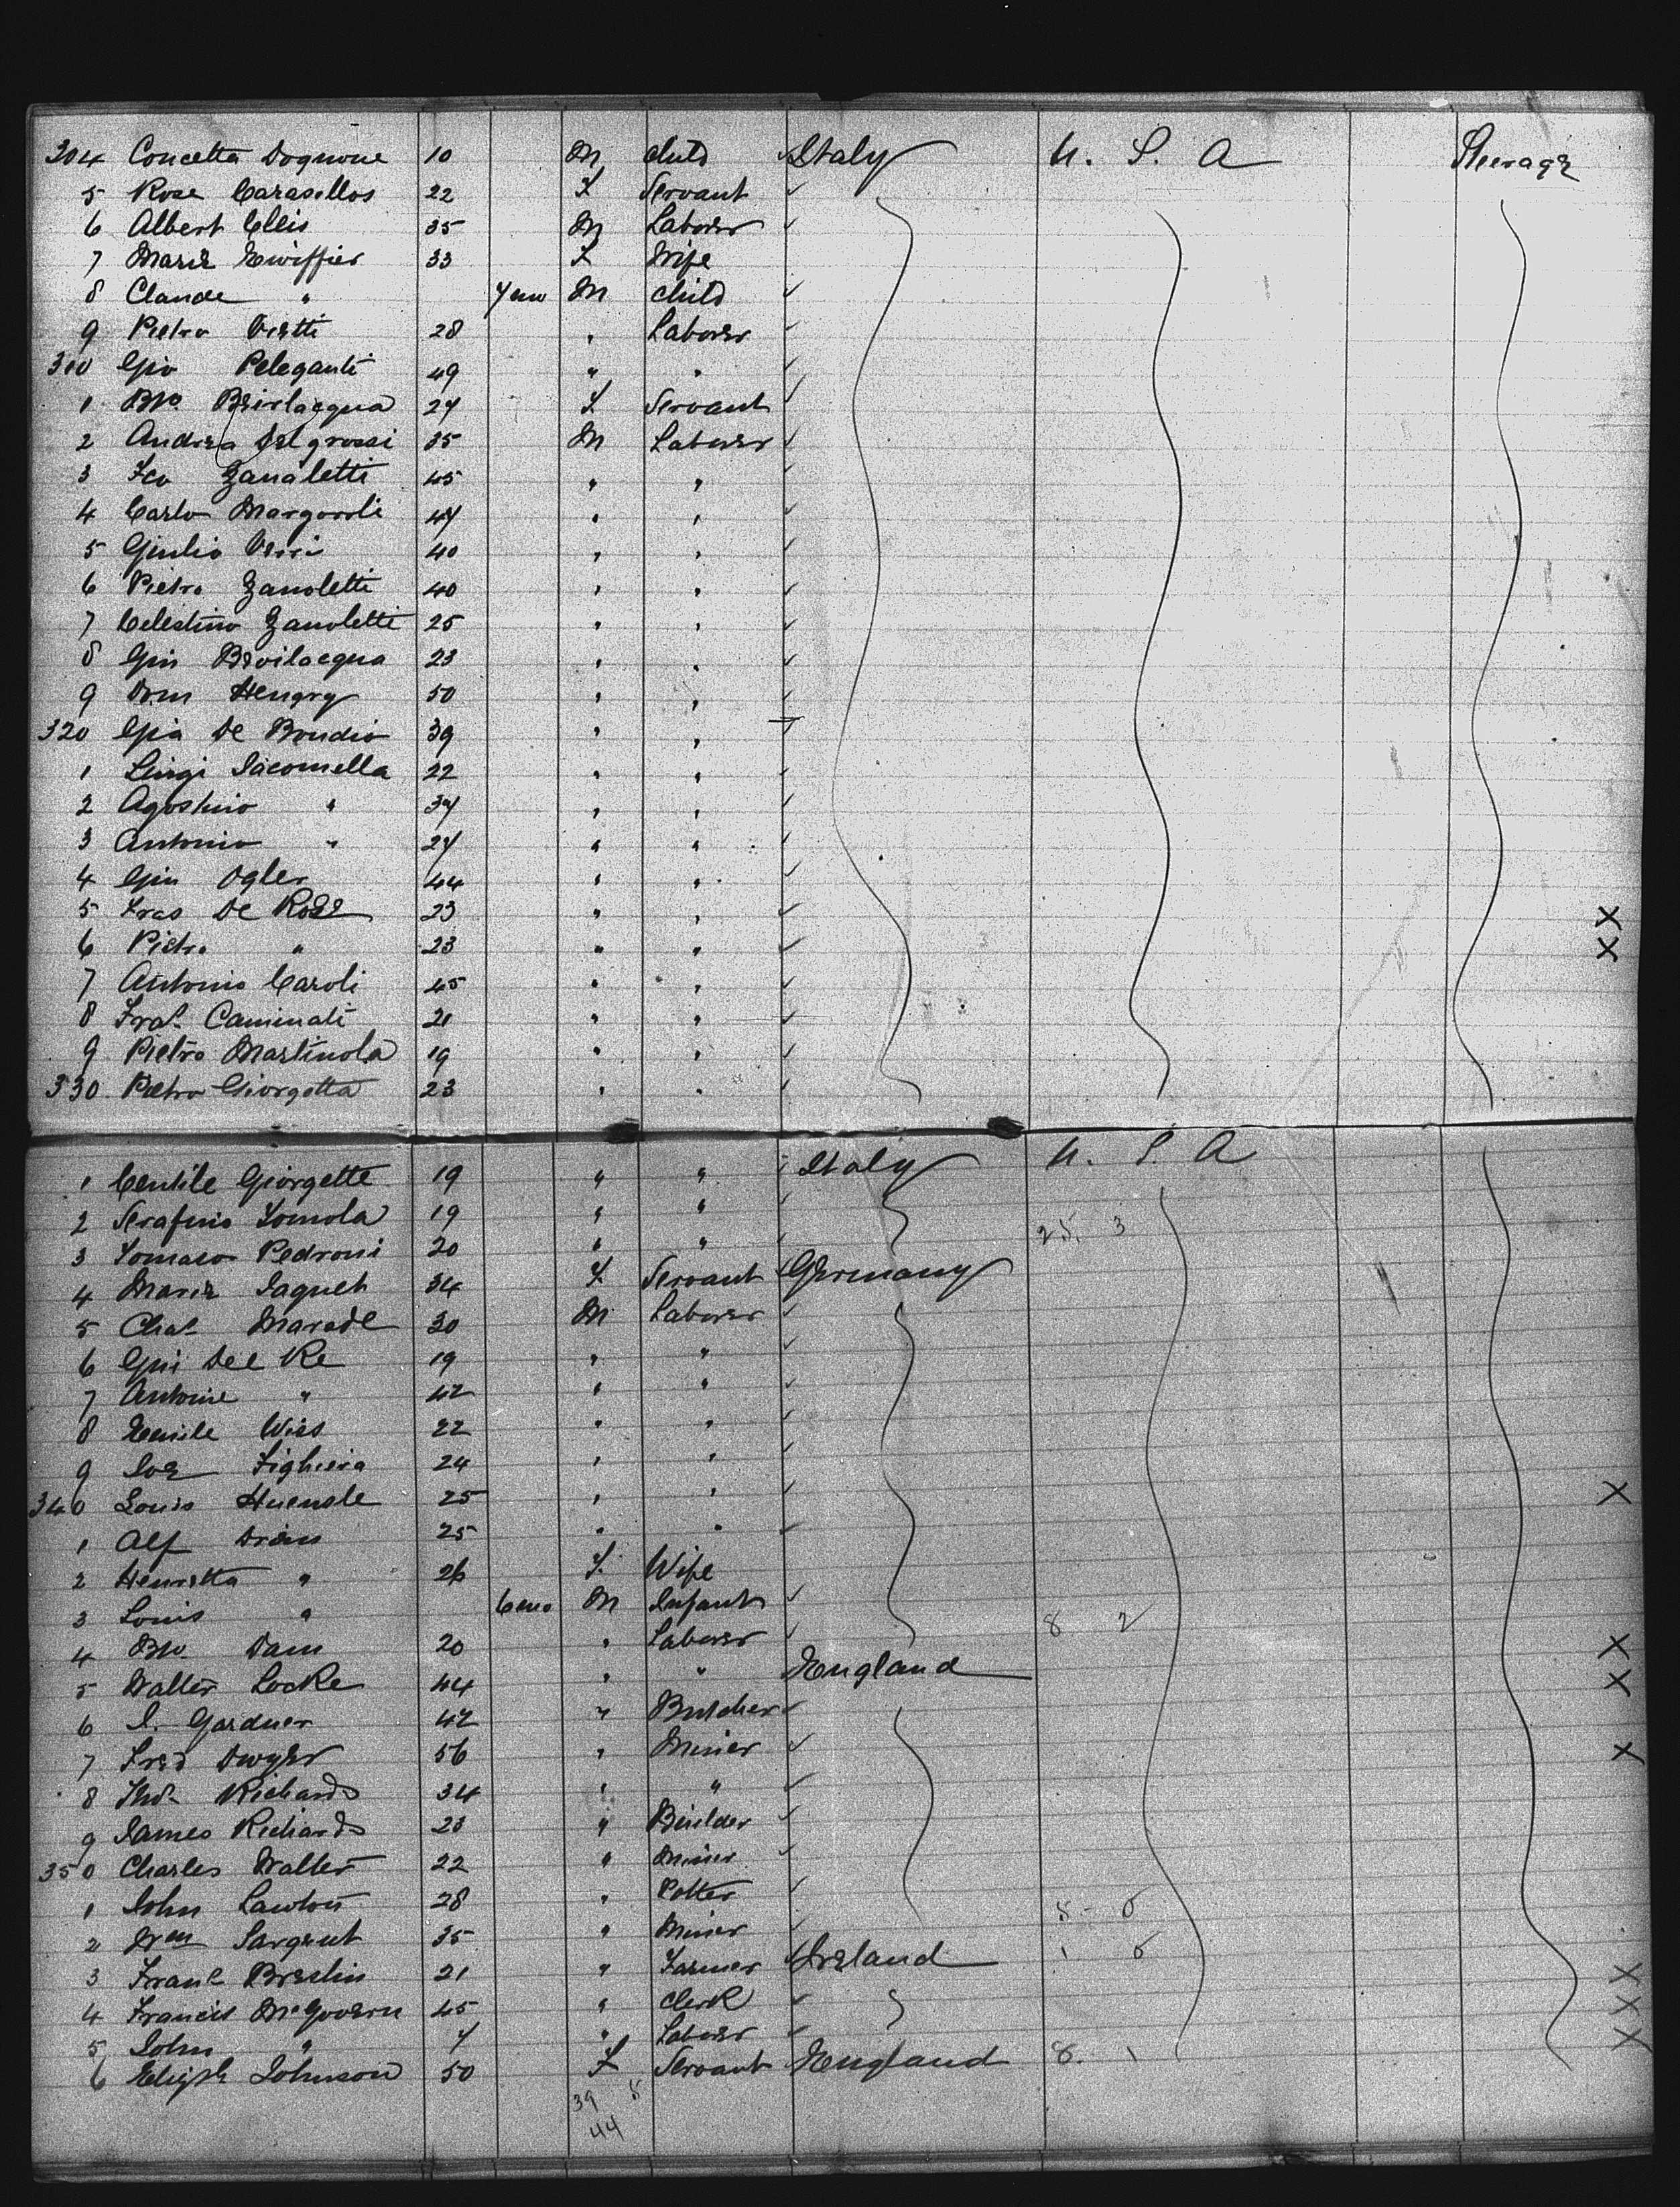 304 Concetta Dognone 10 M child Italy U. S. A Steerage
5 Rose Carasellos 22 F Servant
6 Albert Ellis 35 M Laborer
7 Marie 33 F Wife
8 Claude " 7 mo M child
9 Pietro Vietti 28 " Laborer
310 Gio Peleganti 49 " "
1 Bevilacqua 27 F Servant
2 Andrea Delgrossi 35 M Laborer
3 Fco Zanaletti 45 " "
4 Carlo Margaroli 47 " "
5 Giulio Verri 40 " "
6 Pietro Zanoletti 40 " "
7 Celestino Zanoletti 25 " "
8 Gio Bevilacqua 23 " "
9 Dom Hengry 50 " "
320 Gio De Bondio 39 " "
1 Luigi Iacomella 22 " "
2 Agostino " 37 " "
3 Antonio " 27 " "
4 Gio Ogler 44 " "
5 Fras De Rose 23 " " X
6 Pietro " 23 " " X
7 Antonio Caroli 45 " "
8 Fras Caminati 21 " "
9 Pietro Martinola 19 " "
330 Pietro Giorgetta 23 " "
1 Gentile Giorgette 19 " " Italy U. S. A
2 Serafino Tomola 19 " "
25. 3
3 Tomaso Pedroni 20 " "
4 Marie Jaquet 34 F Servant Germany
5 Chas Marade 30 M Laborer
6 Gui Del Re 19 " "
7 Antoine " 42 " "
8 Emile Wies 22 " "
9 Joe Fighiera 24 " "
340 Louis Huensle 25 " " X
1 Alf Drien 25 " "
2 Henrietta " 26 F. Wife
3 Louis " 6 mo M Infant
8 2
4 Dam 20 " Laborer X
5 Walter Locke 44 " " England X
6 J. Gardner 42 " Butcher
7 Fred Dwyer 56 " Miner X
8 Thos Richards 34 " "
9 James Richards 23 " Builder
350 Charles Walter 22 " Miner
1 John Lawton 28 " Potter
2 Wm Sargent 35 " Miner
3 Frank Breslin 21 " Farmer Ireland X
4 Francis McGovern 45 " Clerk X
5 John " 7 " Laborer X
6 Johnson 50 F Servant England 8. 1
39 5
44